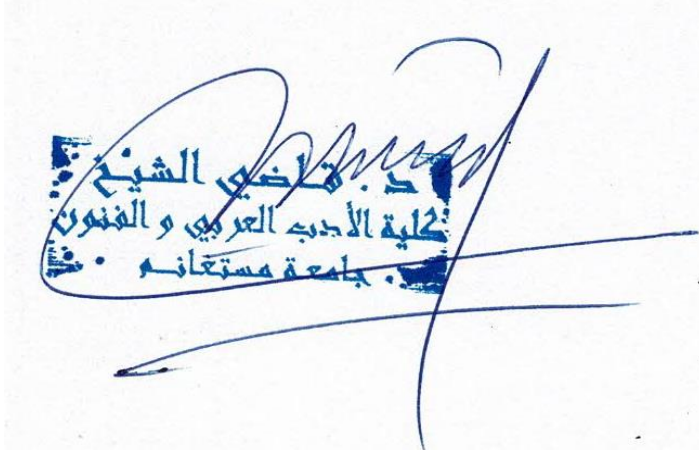 د. قاضي الشيخ
كلية الأدب العربي و الفنون
جامعة مستغانم